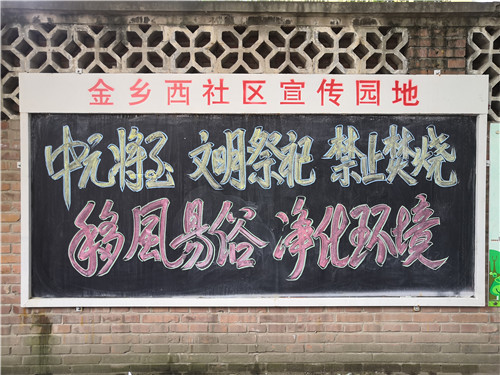 金乡西社区宣传园地
中元将至 文明祭祀 禁止焚烧
移风易俗 净化环境